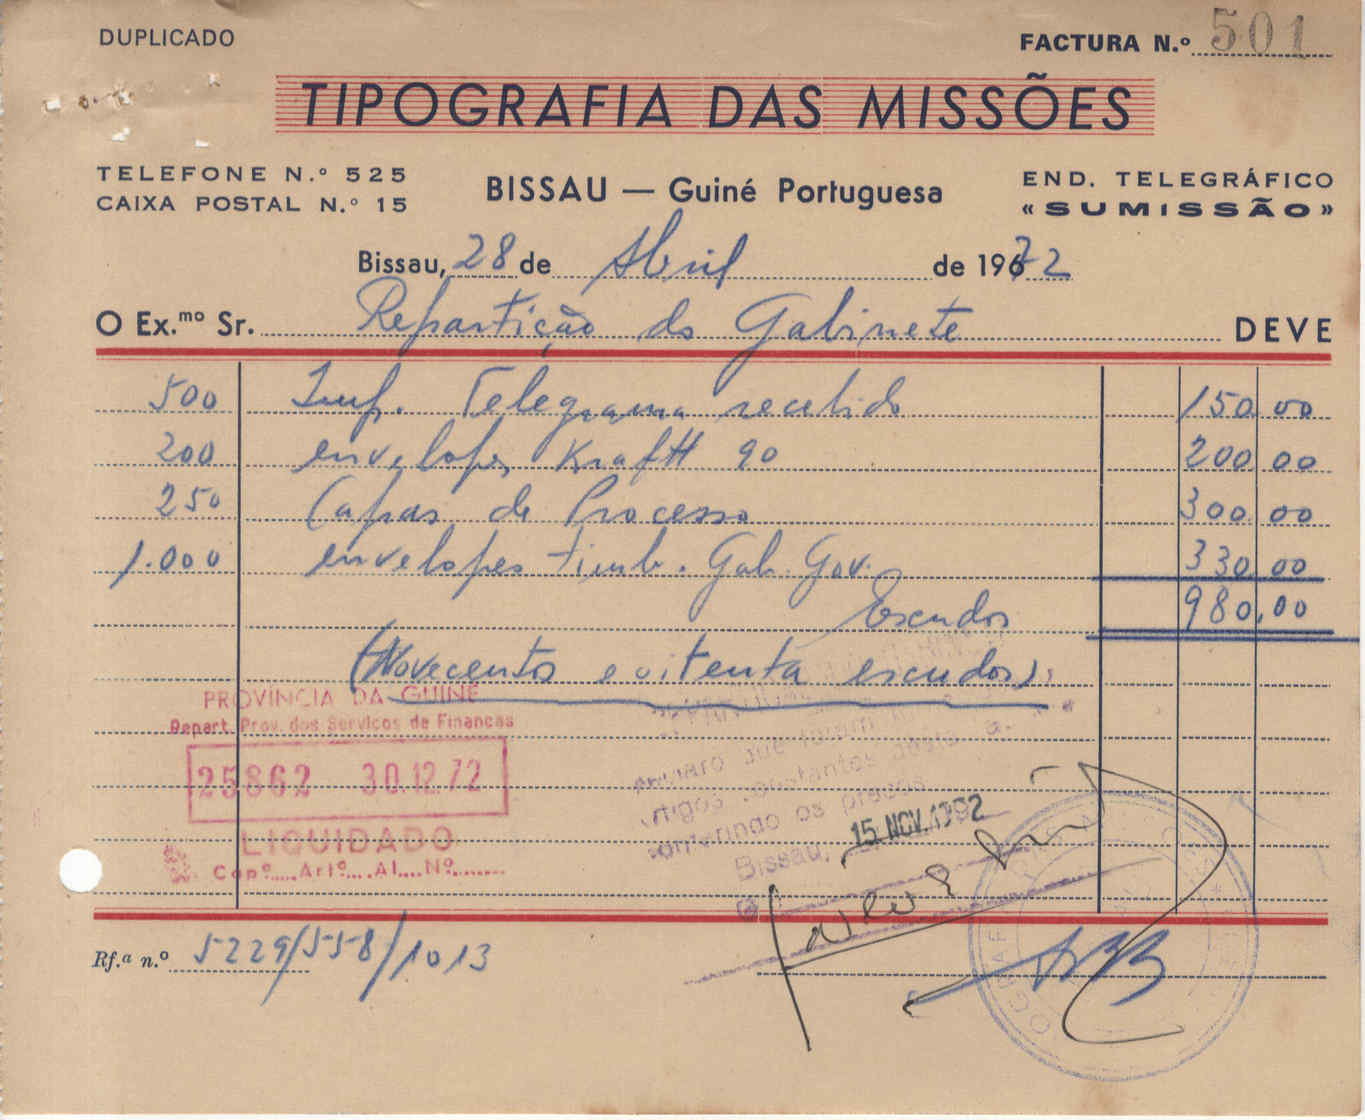 DUPLICADO
FACTURA N.º 501
TIPOGRAFIA DAS MISSÕES
TELEFONE N.º 525
CAIXA POSTAL N.º 15
BISSAU — Guiné Portuguesa
END. TELEGRÁFICO
« SUMISSÃO »
Bissau, 28 de Abril de 1972
O Ex.mo Sr. Repartição do Gabinete DEVE
500 Imp. Telegrama recebido 150,00
200 envelopes Krafft 90 200,00
250 Capas de Processo 300,00
1.000 envelopes timb. Gab. Gov. 330,00
Escudos 980,00
(Novecentos e oitenta escudos):
PROVÍNCIA DA GUINÉ
Repart. Prov. dos Serviços de Finanças
25862 30.12.72
LIQUIDADO
Capº.... Artº.... Al.... Nº.......
que foram
artigos constantes desta
conferindo os preços
Bissau, 15 NOV. 1972
Rf.ª n.º 5229/558/1013